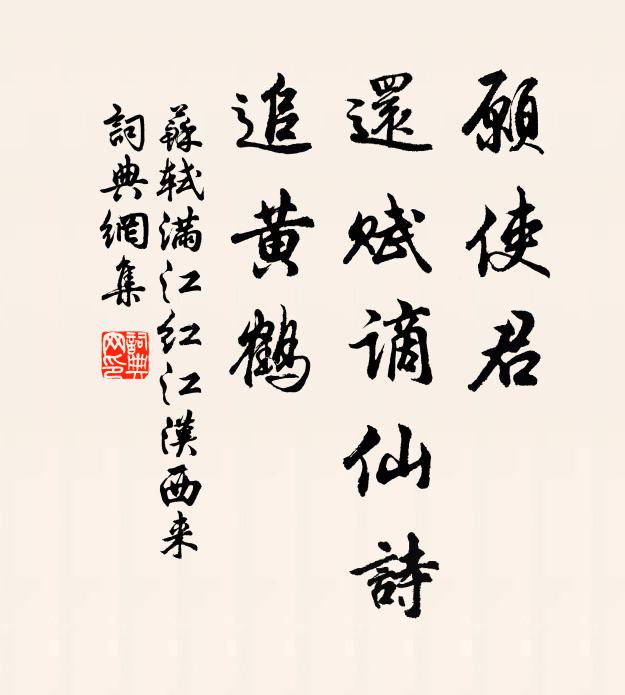 願使君
還賦謫仙詩
追黃鶴
蘇軾滿江紅江漢西来
詞典網集
詞典
网印